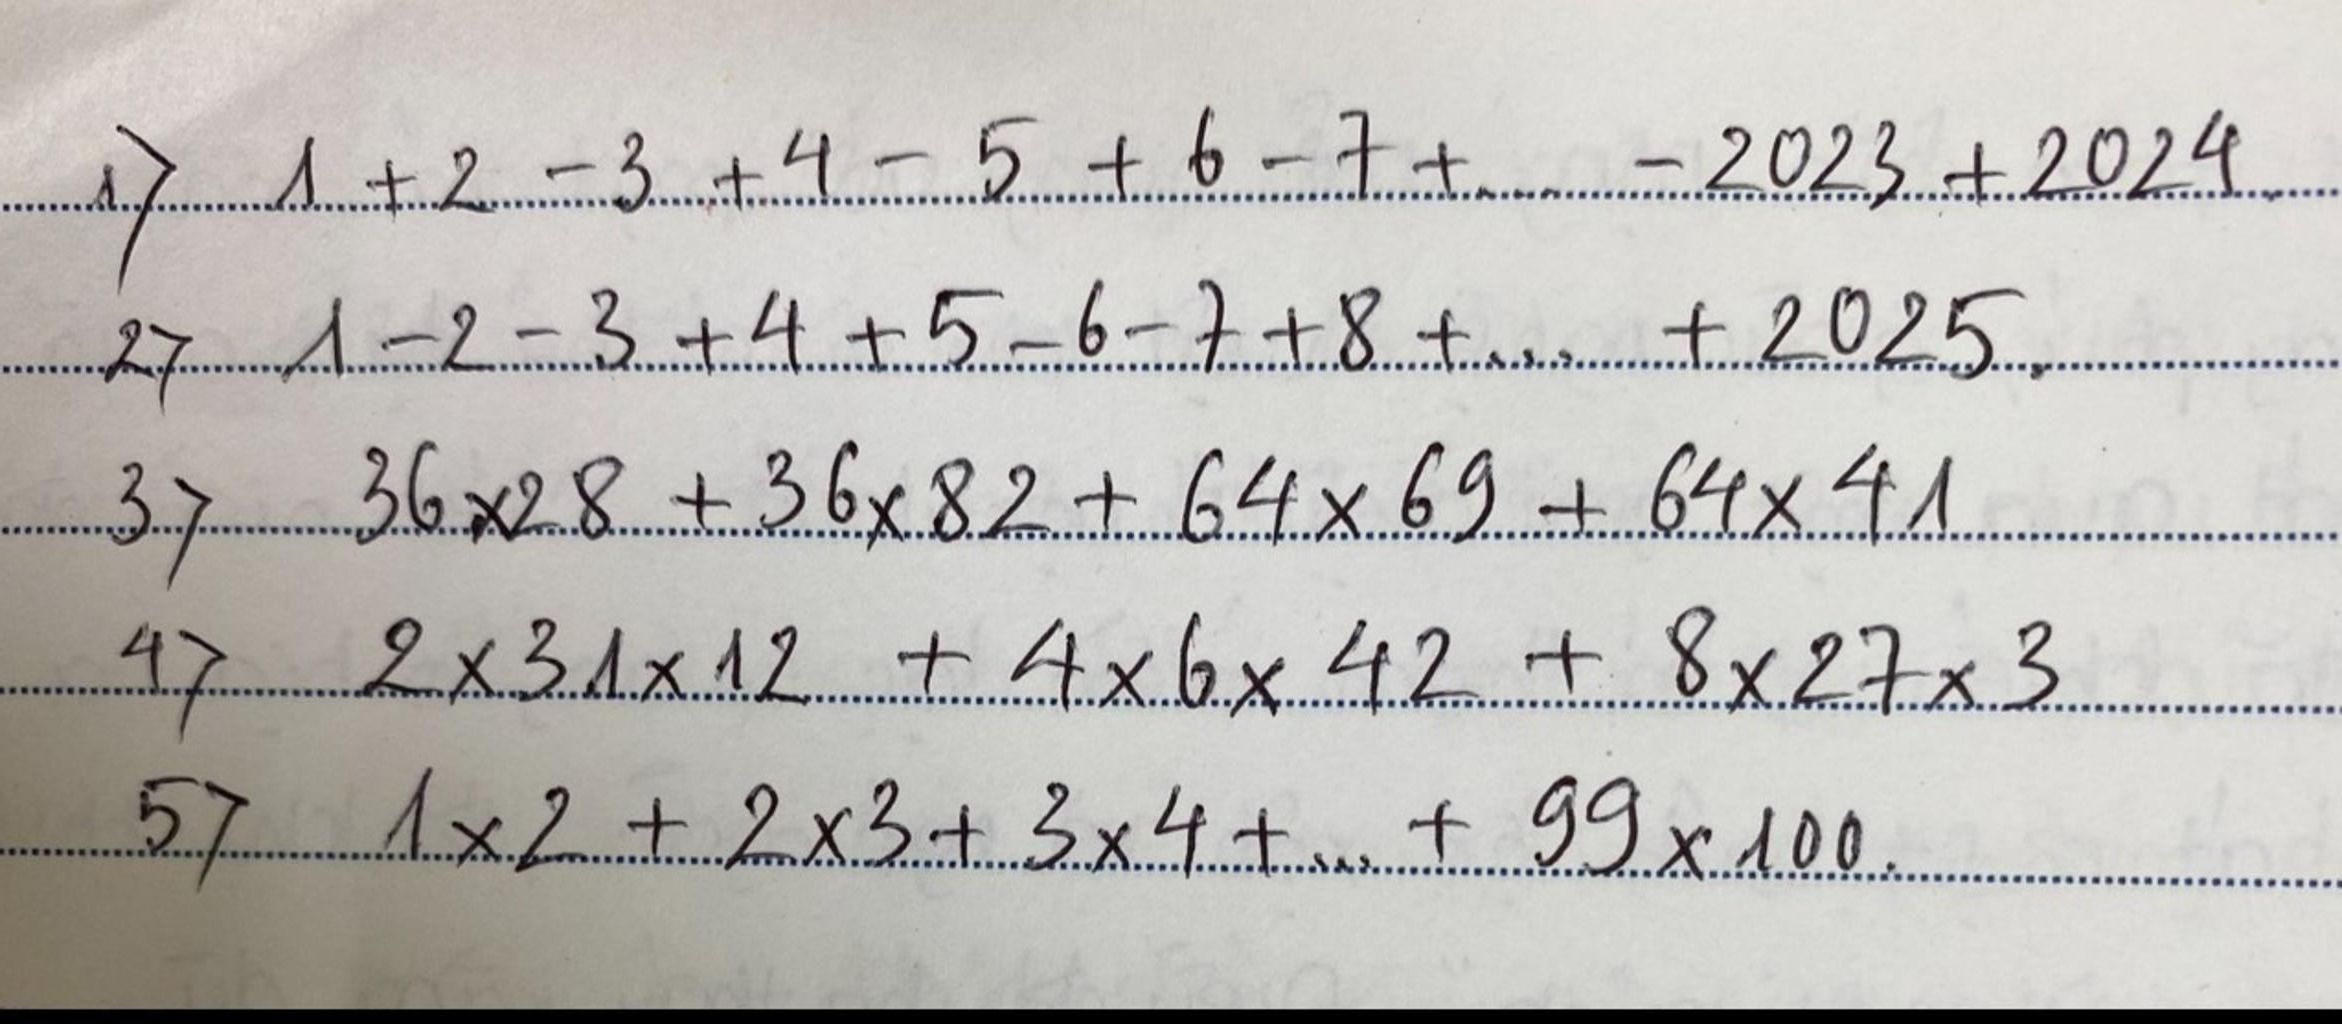 1) 1 + 2 - 3 + 4 - 5 + 6 - 7 + .... - 2023 + 2024
2) 1 - 2 - 3 + 4 + 5 - 6 - 7 + 8 + .... + 2025.
3) 36 x 28 + 36 x 82 + 64 x 69 + 64 x 41
4) 2 x 31 x 12 + 4 x 6 x 42 + 8 x 27 x 3
5) 1 x 2 + 2 x 3 + 3 x 4 + ... + 99 x 100.